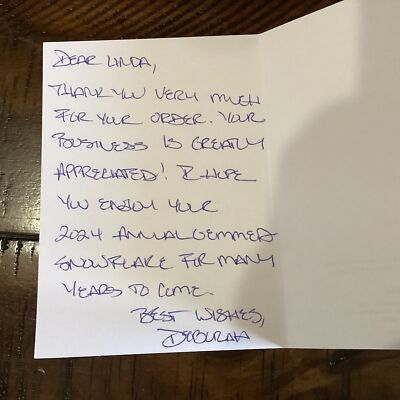 DEAR LINDA,
THANK YOU VERY MUCH
FOR YOUR ORDER. YOUR
BUSINESS IS GREATLY
APPRECIATED! I HOPE
YOU ENJOY YOUR
2024 ANNUAL GEMMED
SNOWFLAKE FOR MANY
YEARS TO COME.
BEST WISHES,
DEBORAH